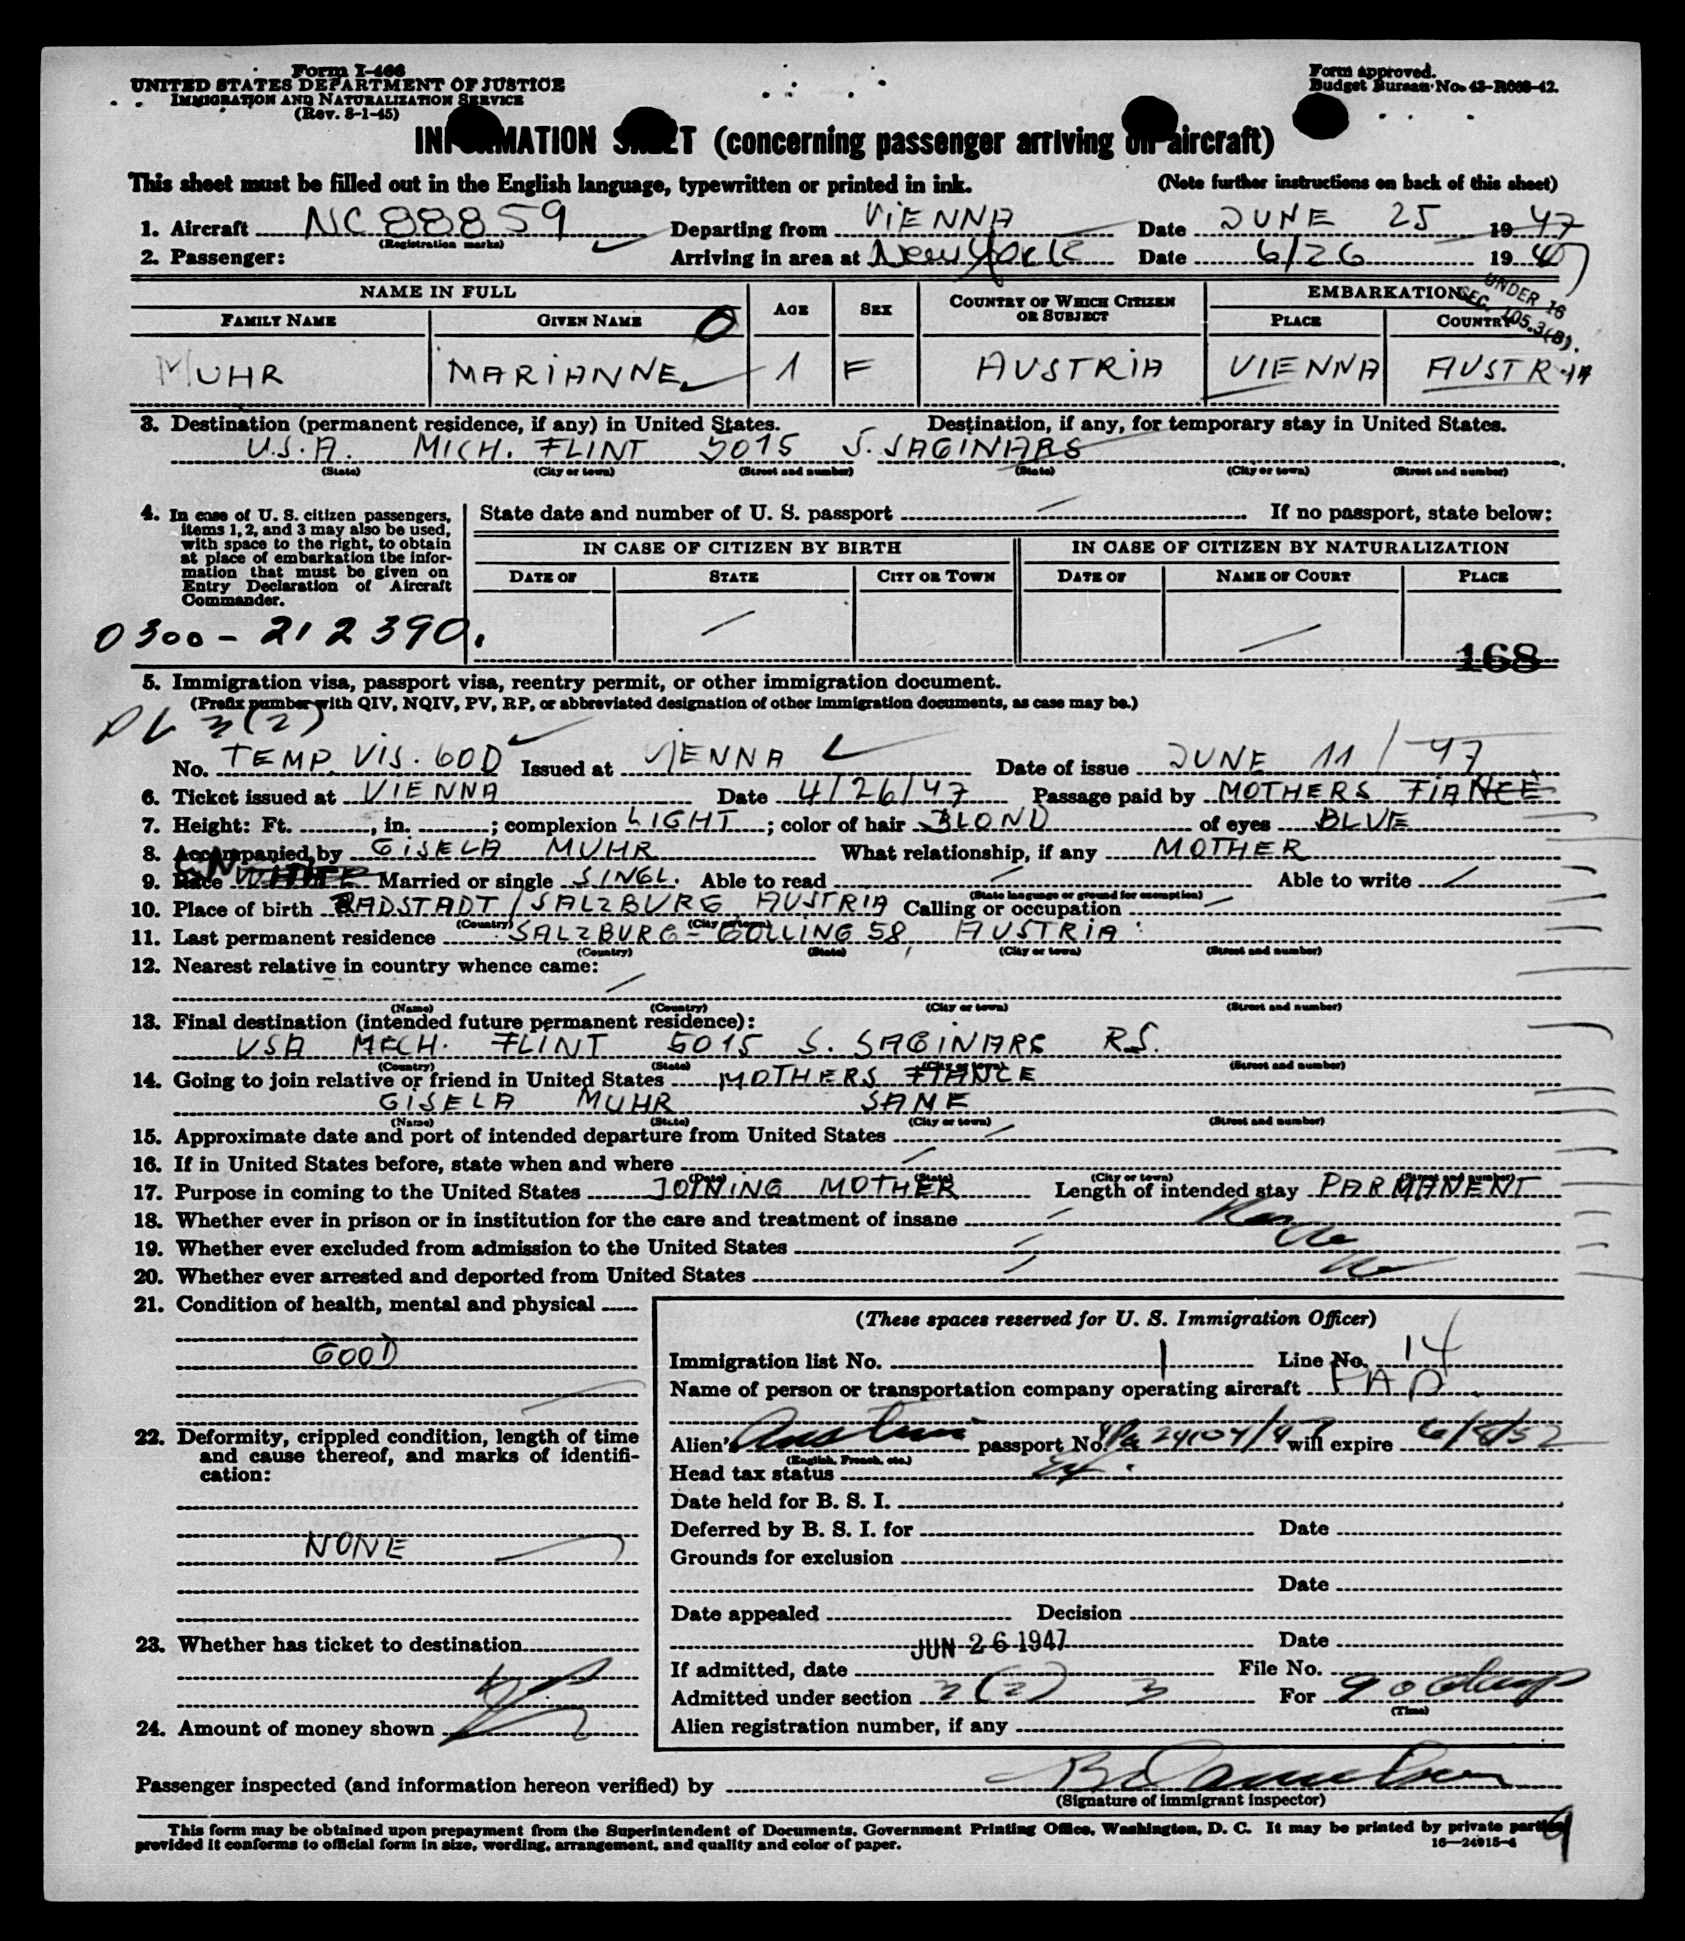 Form I-466
UNITED STATES DEPARTMENT OF JUSTICE
IMMIGRATION AND NATURALIZATION SERVICE
(Rev. 8-1-45)
Form approved.
Budget Bureau No. 43-R068-42.
INFORMATION SHEET (concerning passenger arriving on aircraft)
This sheet must be filled out in the English language, typewritten or printed in ink. (Note further instructions on back of this sheet)
1. Aircraft NC 88859 Departing from VIENNA Date JUNE 25 1947
(Registration marks)
2. Passenger: Arriving in area at New York Date 6/26 1947
UNDER 16
SEC. 105.3(B).
NAME IN FULL AGE SEX COUNTRY OF WHICH CITIZEN OR SUBJECT EMBARKATION
FAMILY NAME GIVEN NAME PLACE COUNTRY
MUHR MARIANNE 1 F AUSTRIA VIENNA AUSTRIA
3. Destination (permanent residence, if any) in United States. Destination, if any, for temporary stay in United States.
U.S.A. MICH. FLINT 5015 S. SAGINARS
(State) (City or town) (Street and number) (State) (City or town) (Street and number)
4. In case of U. S. citizen passengers, items 1, 2, and 3 may also be used, with space to the right, to obtain at place of embarkation the information that must be given on Entry Declaration of Aircraft Commander.
State date and number of U. S. passport If no passport, state below:
IN CASE OF CITIZEN BY BIRTH IN CASE OF CITIZEN BY NATURALIZATION
DATE OF STATE CITY OR TOWN DATE OF NAME OF COURT PLACE
0300-212390.
168
5. Immigration visa, passport visa, reentry permit, or other immigration document.
(Prefix number with QIV, NQIV, PV, RP, or abbreviated designation of other immigration documents, as case may be.)
3(2)
No. TEMP. VIS. 60D Issued at VIENNA Date of issue JUNE 11/47
6. Ticket issued at VIENNA Date 4/26/47 Passage paid by MOTHERS FIANCÈ
7. Height: Ft. , in. ; complexion LIGHT ; color of hair BLOND of eyes BLUE
8. Accompanied by GISELA MUHR What relationship, if any MOTHER
9. Race WHITE Married or single SINGL. Able to read Able to write
(State language or ground for exemption)
10. Place of birth RADSTADT / SALZBURG, AUSTRIA Calling or occupation
(Country) (City or town)
11. Last permanent residence SALZBURG - GOLLING 58, AUSTRIA
(Country) (State) (City or town) (Street and number)
12. Nearest relative in country whence came:
(Name) (Country) (City or town) (Street and number)
13. Final destination (intended future permanent residence):
USA MECH. FLINT 5015 S. SAGINARS RS.
(Country) (State) (City or town) (Street and number)
14. Going to join relative or friend in United States MOTHERS FIANCE
GISELA MUHR SAME
(Name) (State) (City or town) (Street and number)
15. Approximate date and port of intended departure from United States
16. If in United States before, state when and where
(Date) (State) (City or town) (Street and number)
17. Purpose in coming to the United States JOINING MOTHER Length of intended stay PARMANENT
18. Whether ever in prison or in institution for the care and treatment of insane
19. Whether ever excluded from admission to the United States No
20. Whether ever arrested and deported from United States No
21. Condition of health, mental and physical
GOOD
22. Deformity, crippled condition, length of time and cause thereof, and marks of identification:
NONE
23. Whether has ticket to destination
24. Amount of money shown
(These spaces reserved for U. S. Immigration Officer)
Immigration list No. 1 Line No. 14
Name of person or transportation company operating aircraft PAA
Alien's Austrian passport No. 24104/47 will expire 6/8/52
(English, French, etc.)
Head tax status
Date held for B. S. I.
Deferred by B. S. I. for Date
Grounds for exclusion
Date
Date appealed Decision
JUN 26 1947 Date
If admitted, date File No.
Admitted under section 3(2) 3 For 90 days
(Time)
Alien registration number, if any
Passenger inspected (and information hereon verified) by
(Signature of immigrant inspector)
This form may be obtained upon prepayment from the Superintendent of Documents, Government Printing Office, Washington, D. C. It may be printed by private parties
provided it conforms to official form in size, wording, arrangement, and quality and color of paper. 16—24915-4
9